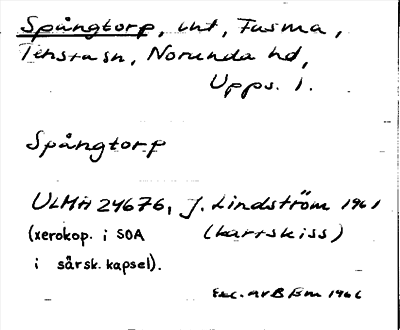 Spångtorp, int, Fusma,
Tensta sn, Norunda hd,
Upps. l.
Spångtorp
ULMA 24676, J. Lindström 1961
(xerokop. i SOA (kartskiss)
i särsk. kapsel).
Exc. av B Bm 1966